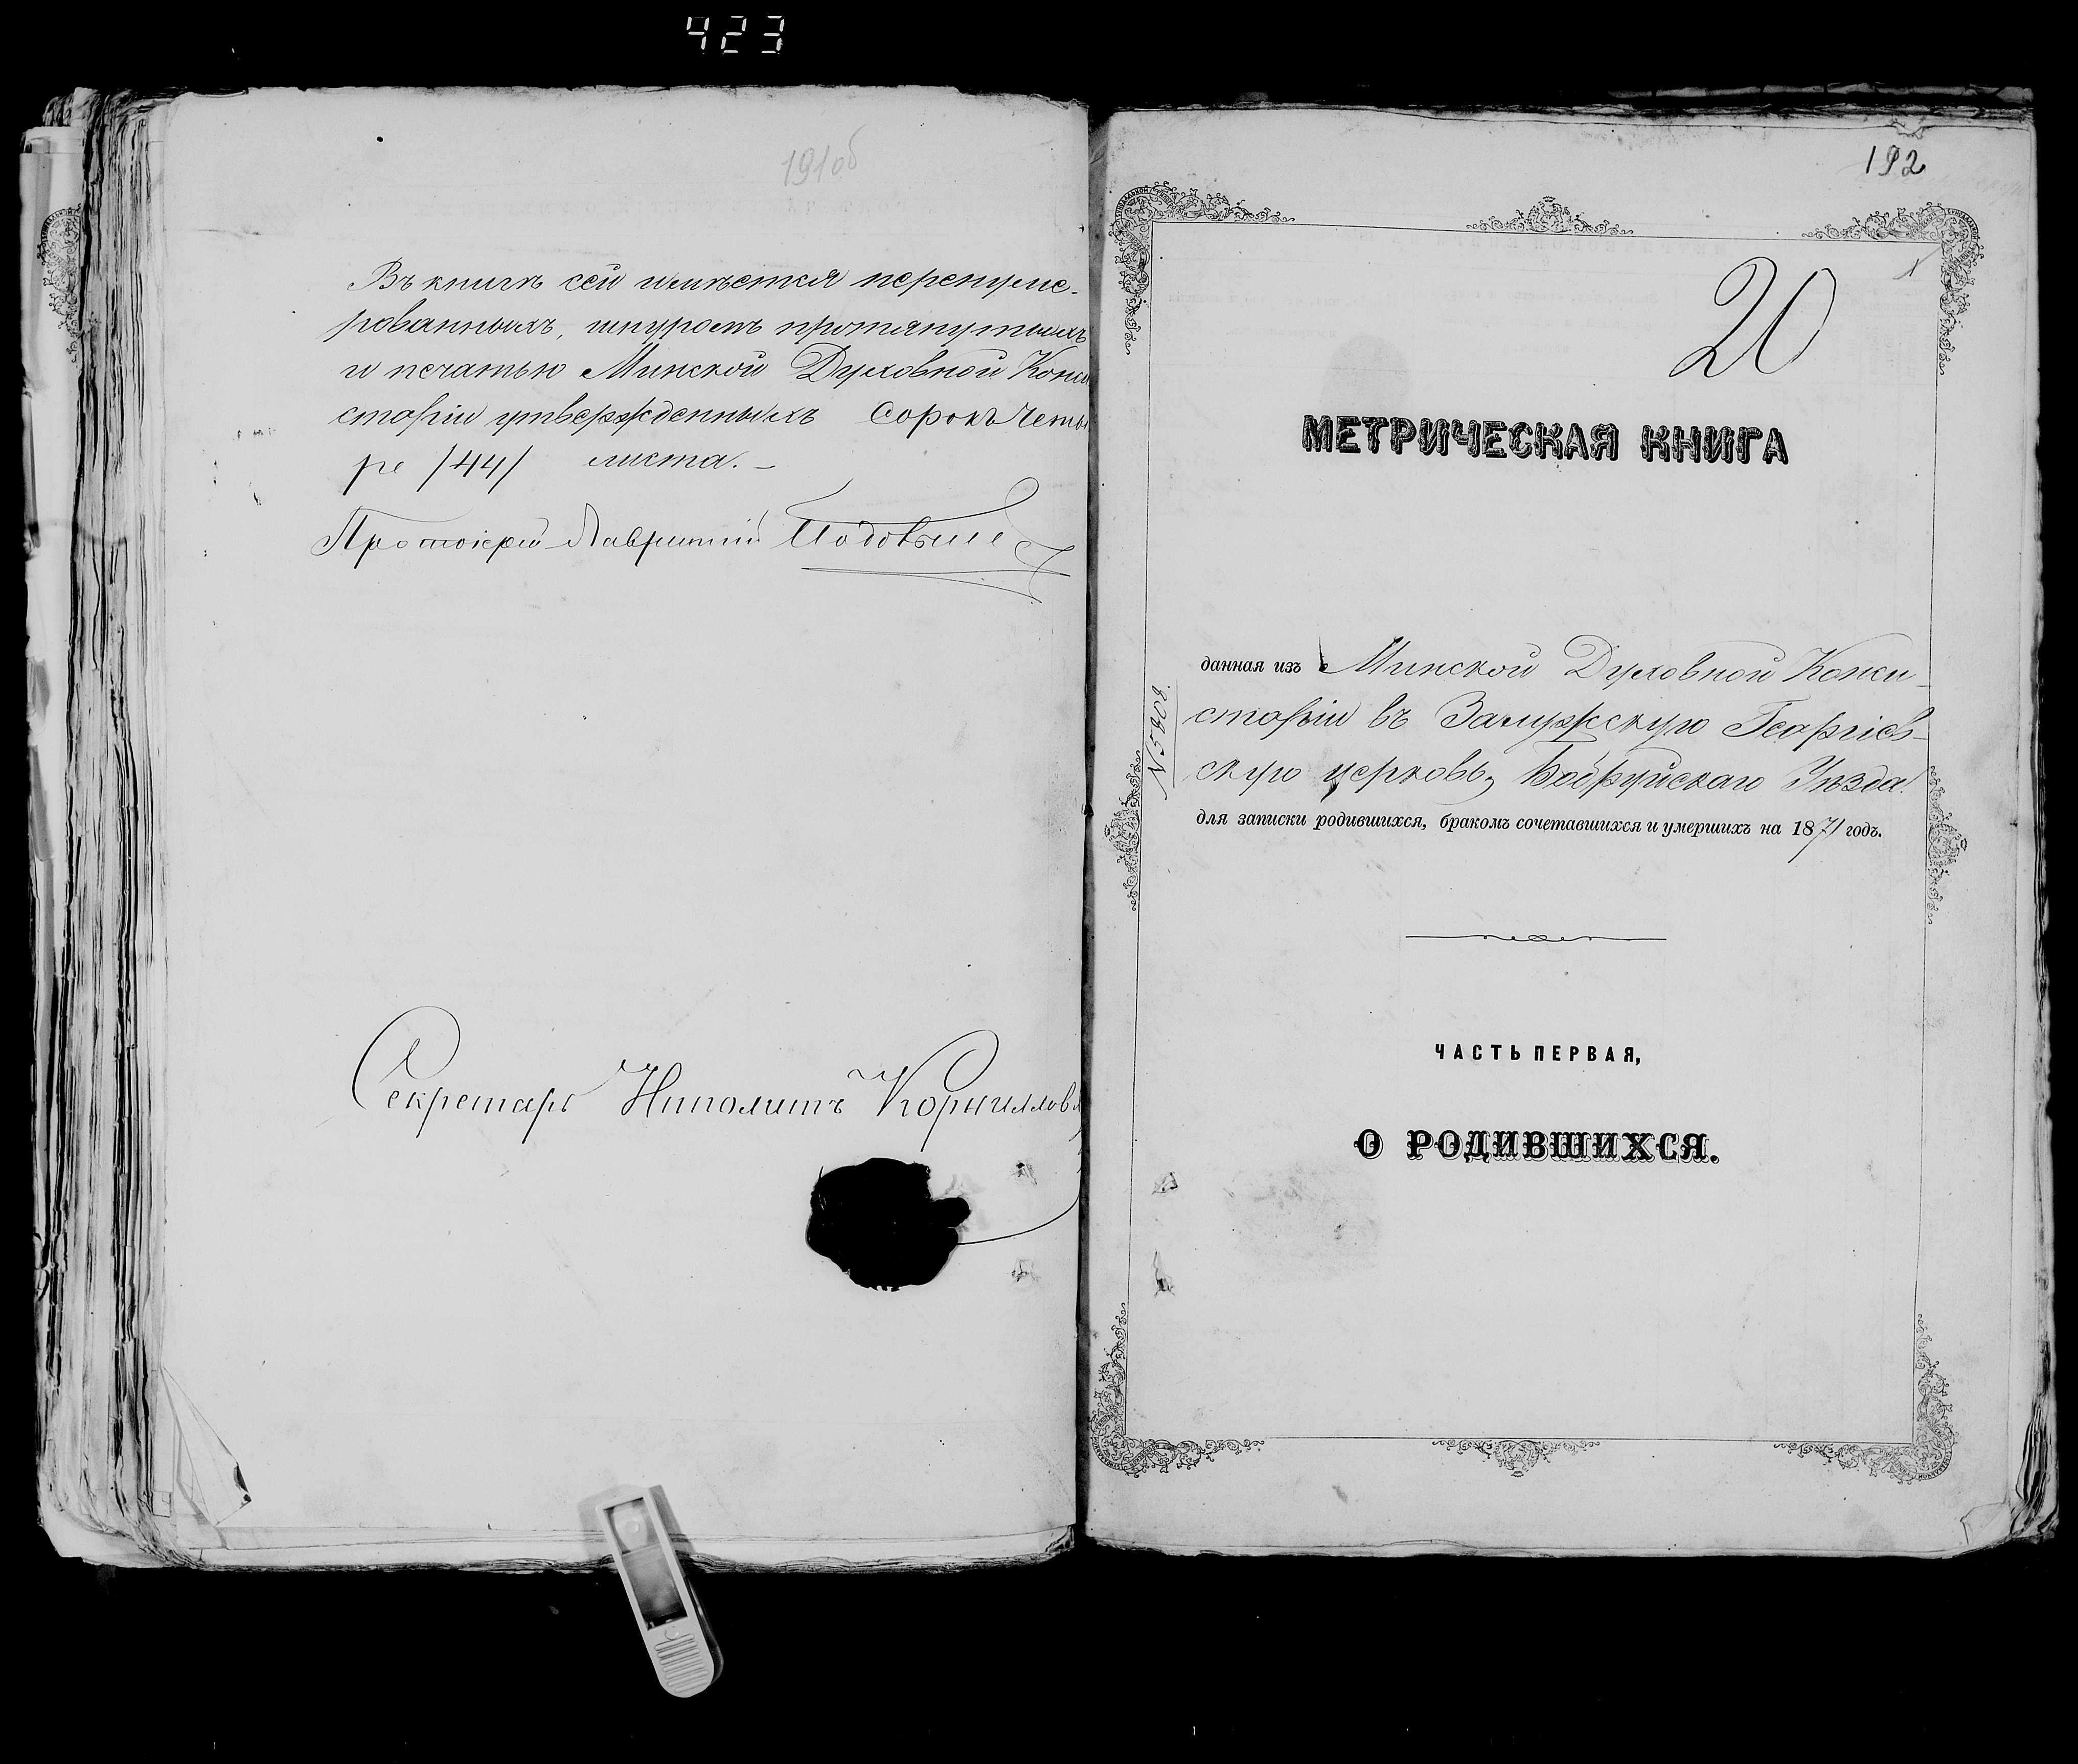 423
191об
Въ книгѣ сей имѣется перенуме-
рованныхъ, шнуромъ протянутыхъ
и печатью Минской Духовной Конси
сторіи утвержденныхъ сорокъ четы
ре /44/ листа. –
Протоіерей Лаврентій
Секретарь Иполитъ Корниллов
192
1
20
МЕТРИЧЕСКАЯ КНИГА
данная изъ Минской Духовной Конси-
сторіи въ Залужскую Георгіев-
скую церковь, Бобруйскаго Уѣзда
для записки родившихся, бракомъ сочетавшихся и умершихъ на 1871 годъ.
ЧАСТЬ ПЕРВАЯ,
О РОДИВШИХСЯ.